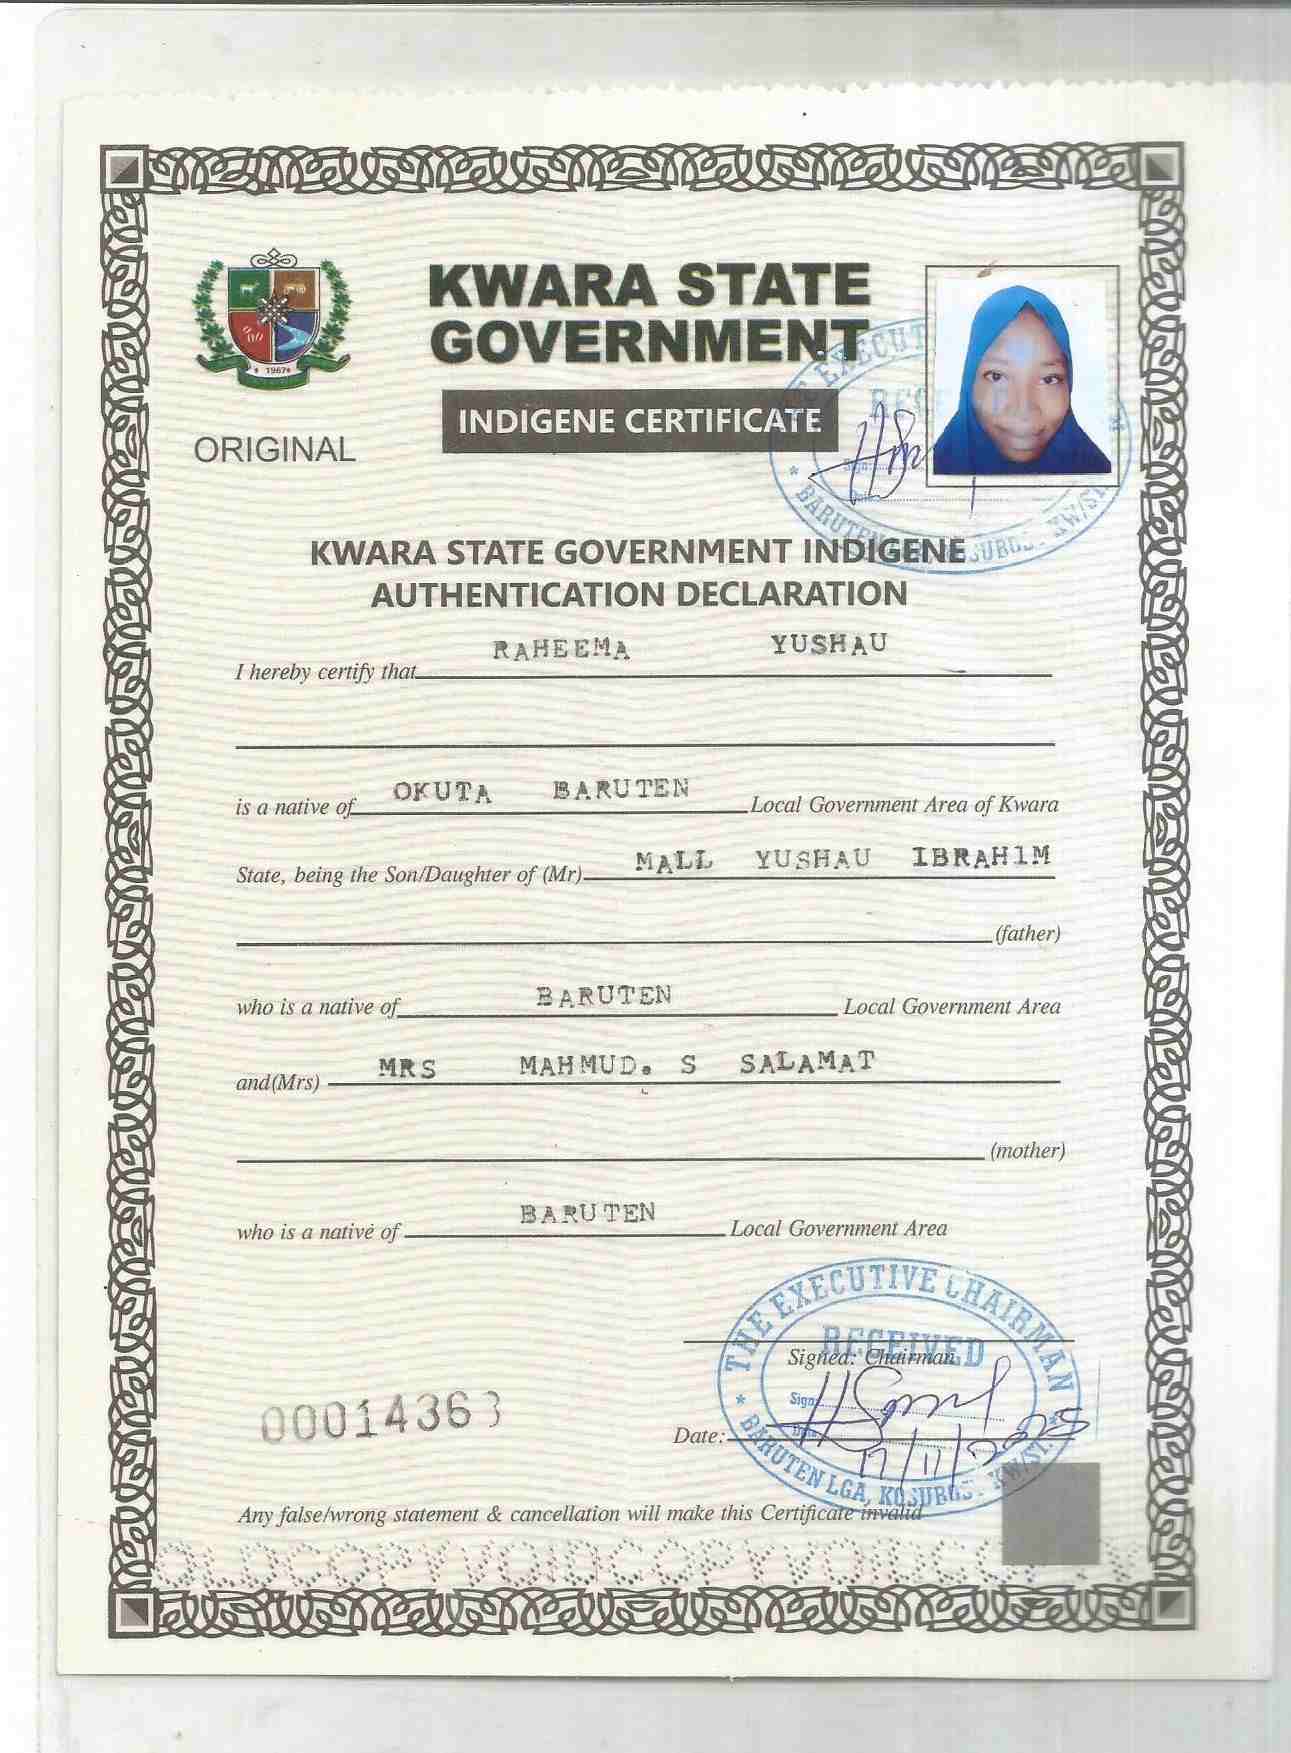 KWARA STATE
GOVERNMENT
INDIGENE CERTIFICATE
1967
ORIGINAL
THE EXECUTIVE
RECEIVED
Sign:
Date:
BARUTEN LGA, KOSUBOSU KW/ST.
KWARA STATE GOVERNMENT INDIGENE
AUTHENTICATION DECLARATION
I hereby certify that RAHEEMA YUSHAU
is a native of OKUTA BARUTEN Local Government Area of Kwara
State, being the Son/Daughter of (Mr) MALL YUSHAU IBRAH1M
(father)
who is a native of BARUTEN Local Government Area
and(Mrs) MRS MAHMUD. S SALAMAT
(mother)
who is a native of BARUTEN Local Government Area
THE EXECUTIVE CHAIRMAN
RECEIVED
Signed: Chairman
Sign:
00014363
Date: 17/11/2025
BARUTEN LGA, KOSUBOSU KW/ST.
Any false/wrong statement & cancellation will make this Certificate invalid